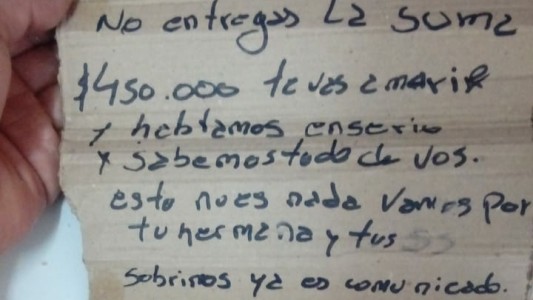 No entregas La suma
$450.000 te vas a morir
y hablamos enserio
y sabemos todo de vos.
esto nues nada vamos por
tu hermana y tus
sobrinos ya es comunicado.